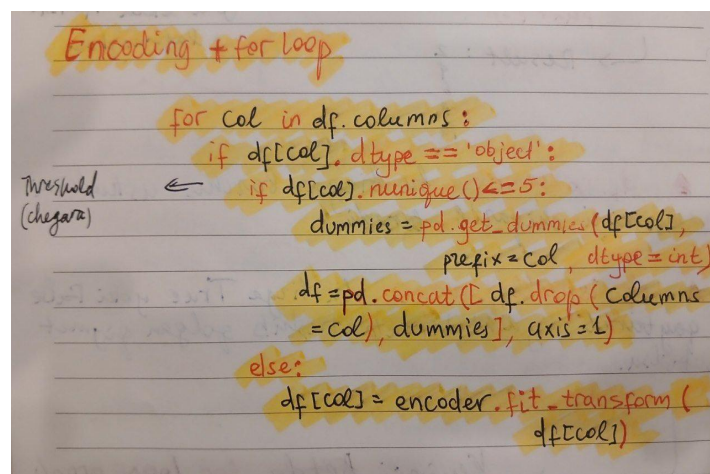 Encoding + for loop
for col in df.columns:
if df[col].dtype == 'object':
Threshold ← if df[col].nunique()<=5:
(chegara)
dummies = pd.get_dummies(df[col],
prefix=col, dtype=int)
df = pd.concat([df.drop(columns
=col), dummies], axis=1)
else:
df[col] = encoder.fit_transform(
df[col])